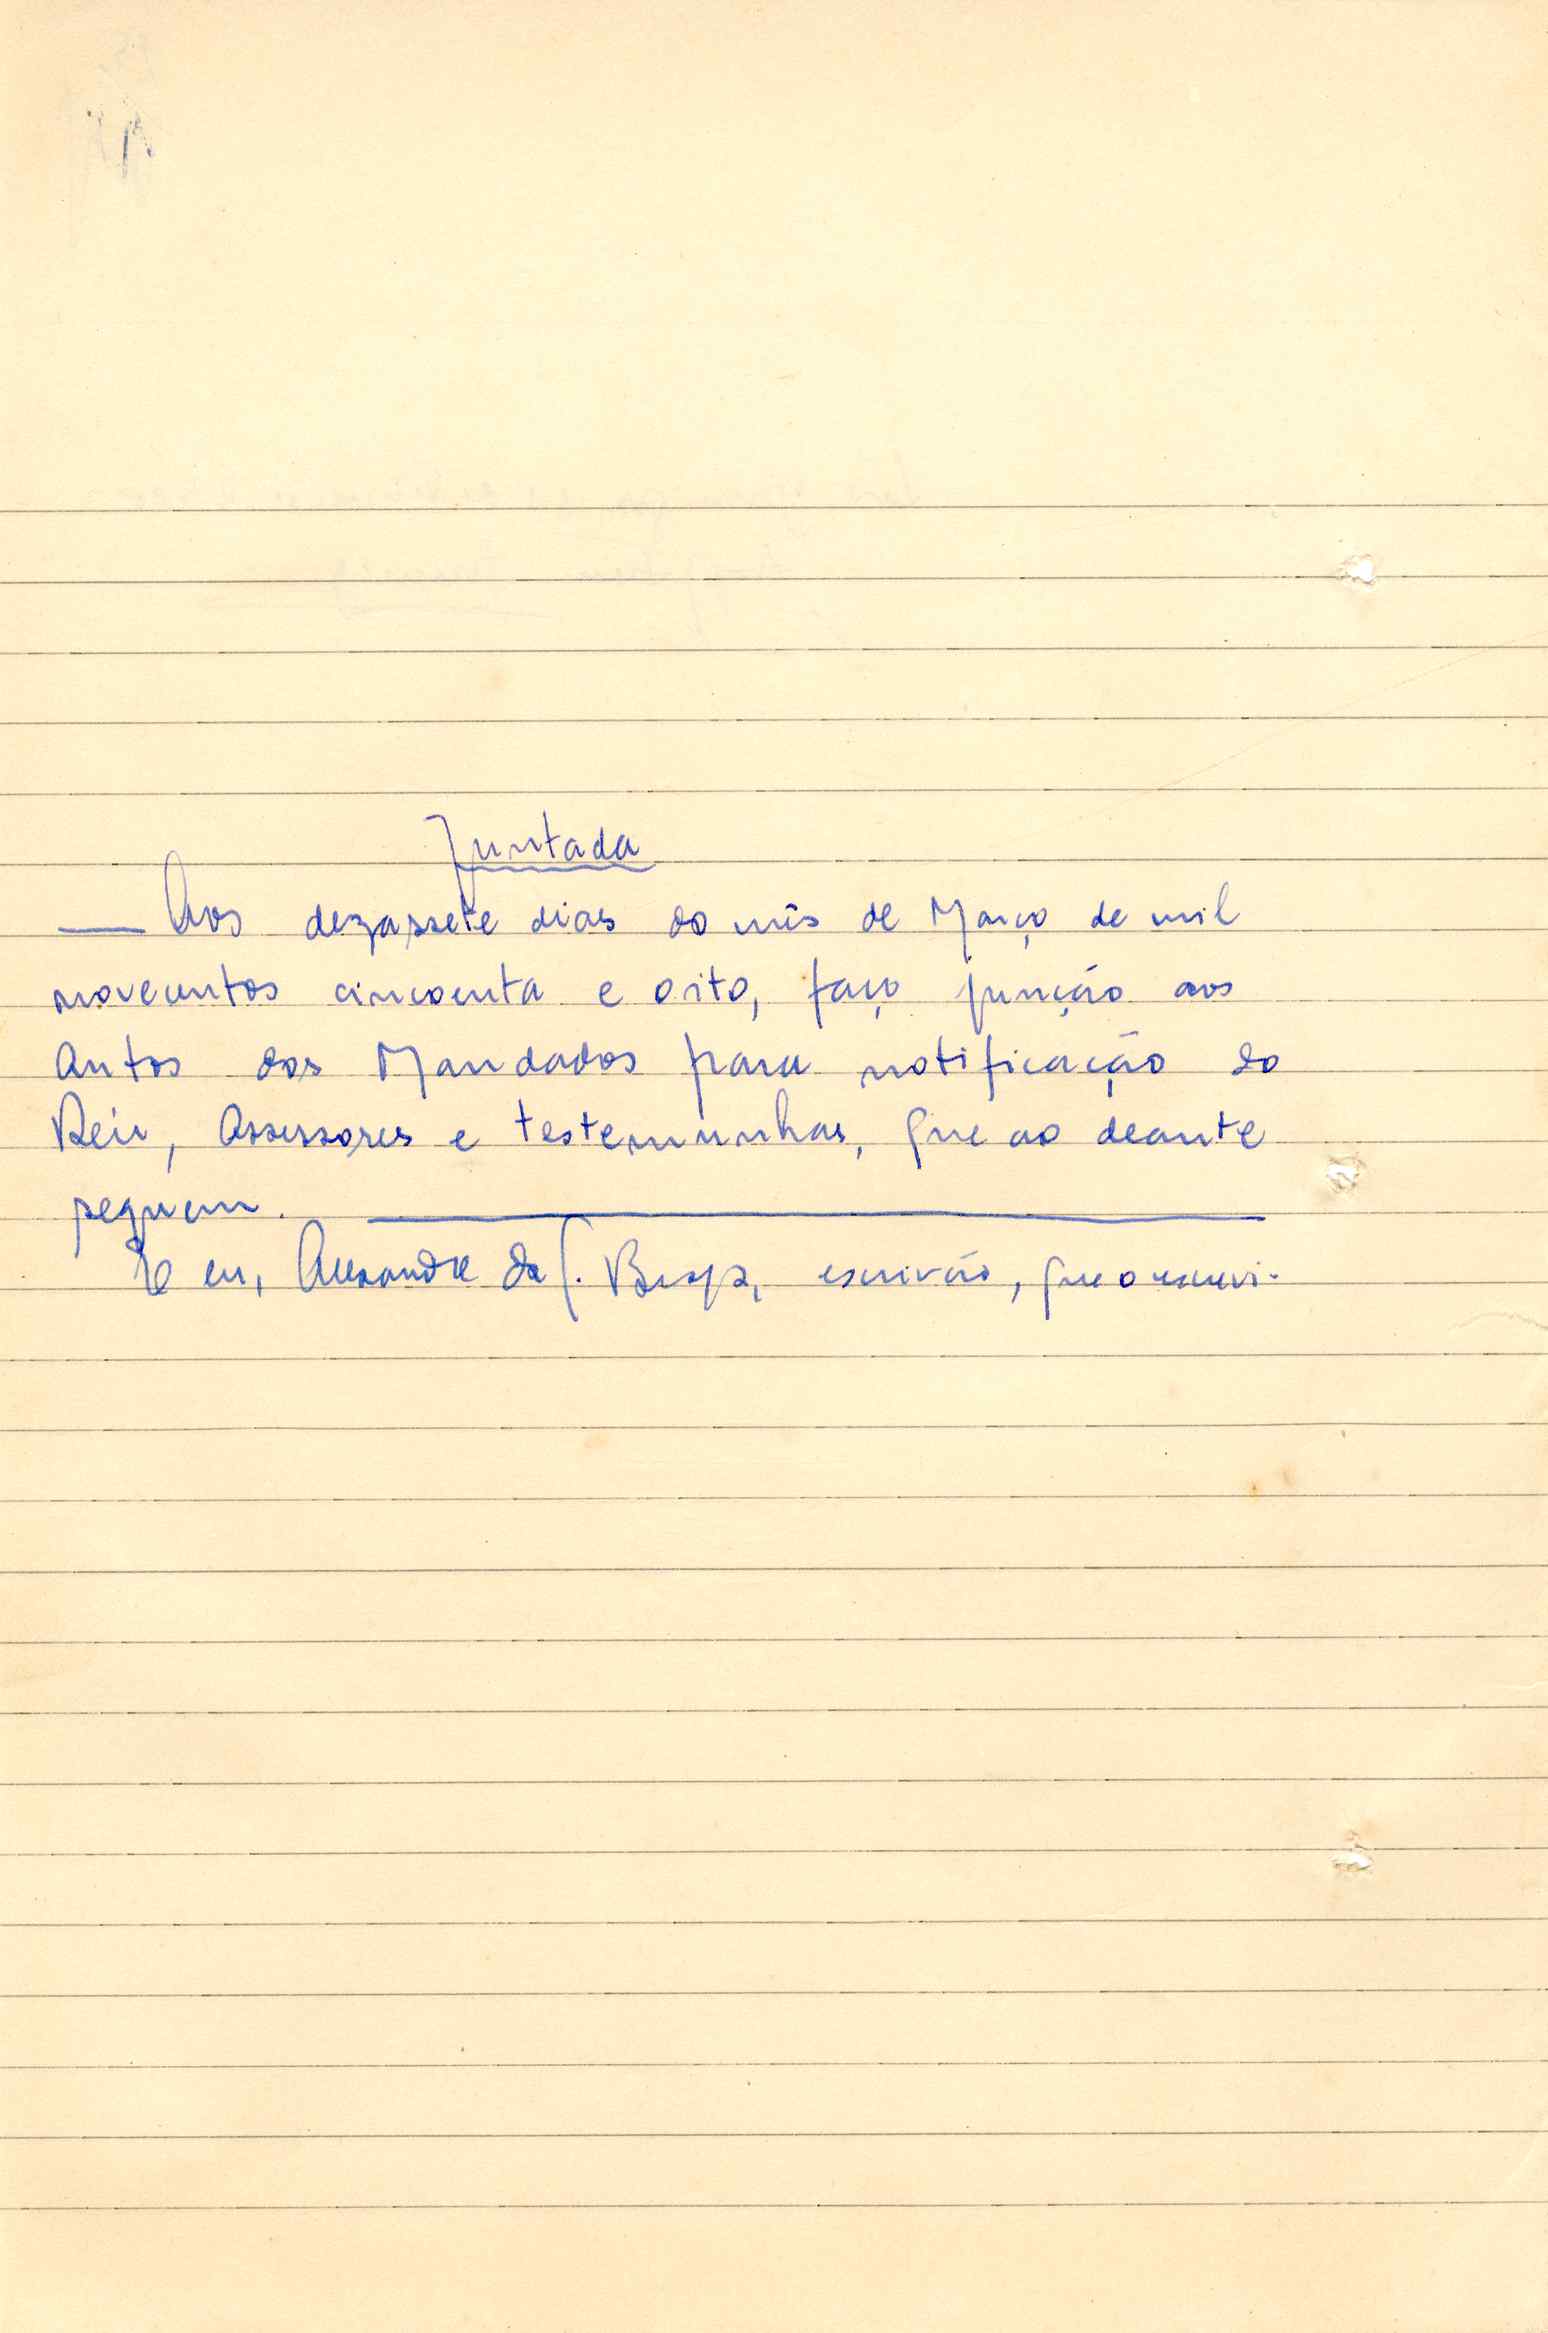 Juntada
Aos dezassete dias do mês de Março de mil
novecentos cincoenta e oito, faço junção aos
Autos dos Mandados para notificação do
Réu, Assessores e testemunhas, que ao deante
seguem.
E eu, Alexandre da escrivão, que o escrevi.